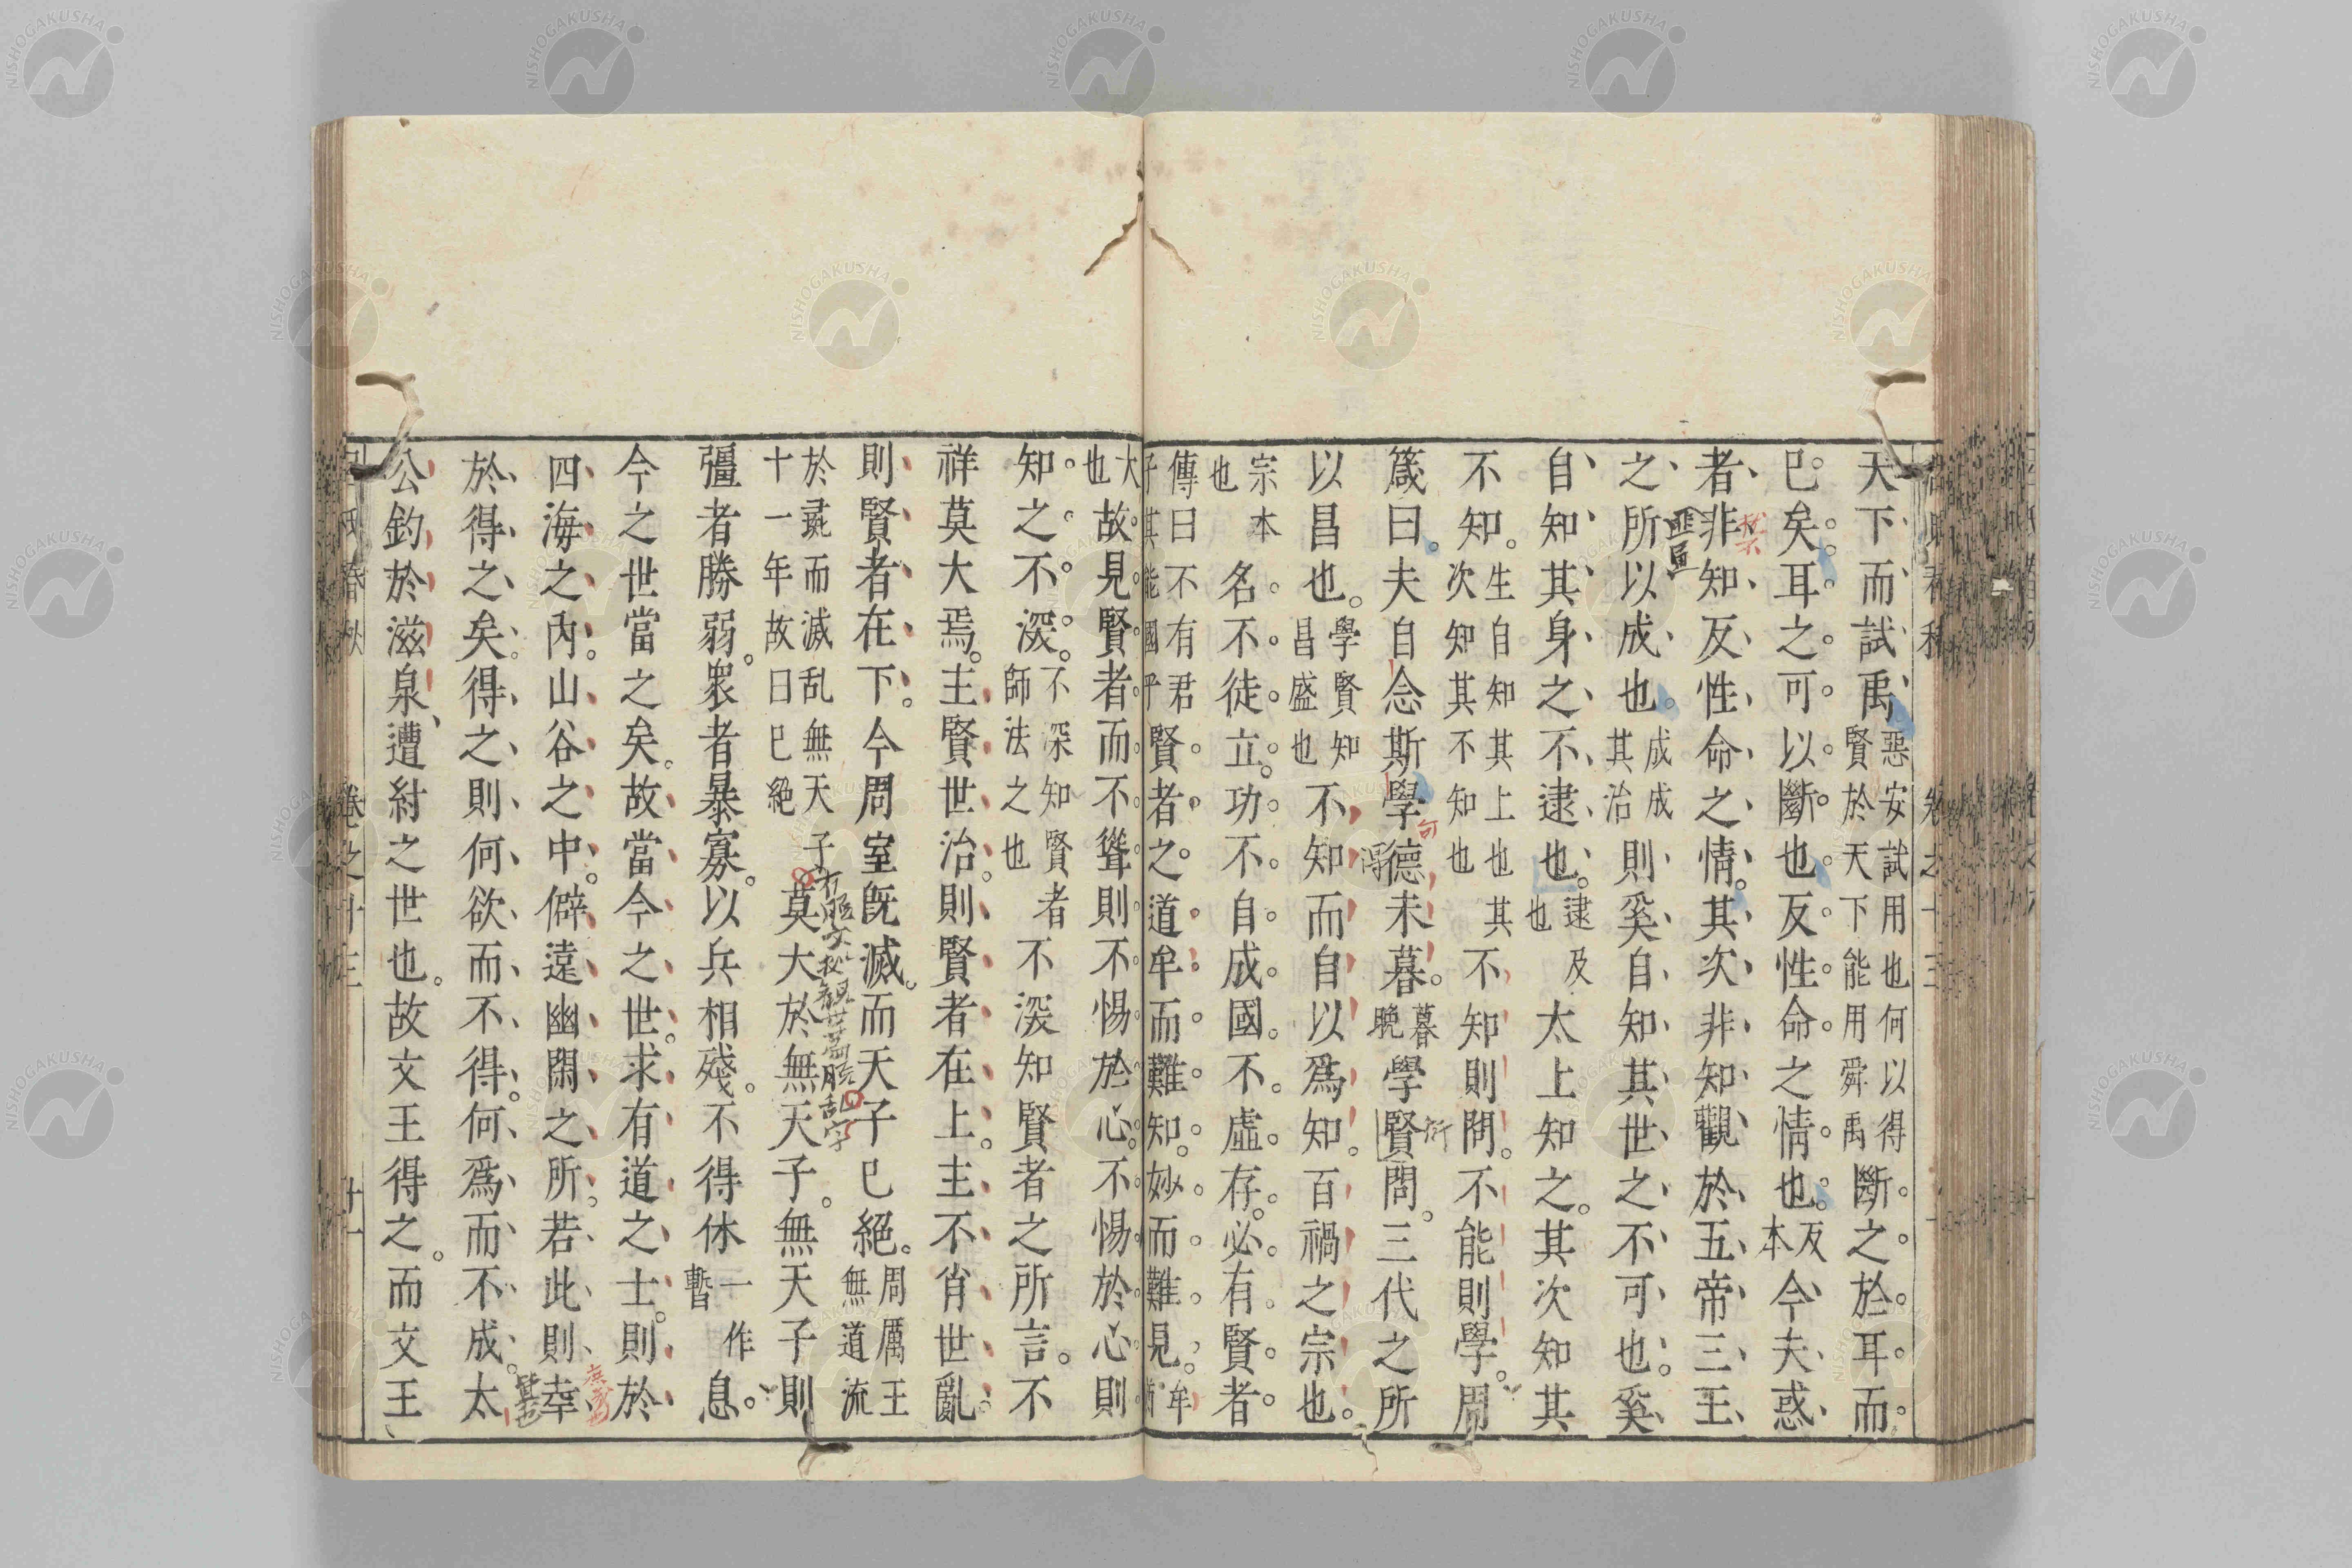 天下而試禹惡安試用也何以得賢於天下能用舜禹斷之於耳而
已矣耳之可以斷也反性命之情也反本今夫惑
者非知反性命之情其次非知觀於五帝三王
之所以成也成成其治則奚自知其世之不可也奚
自知其身之不逮也逮及也太上知之其次知其
不知生自知其上也其次知其不知也不知則問不能則學周
箴曰夫自念斯學德未暮暮晚學賢問三代之所
以昌也學賢知昌盛也不知而自以爲知百禍之宗也
宗本也名不徒立功不自成國不虛存必有賢者
傳曰不有君子其能國乎賢者之道牟而難知妙而難見牟
大也故見賢者而不聳則不惕於心不惕於心則
知之不深不深知賢者師法之也不深知賢者之所言不
祥莫大焉主賢世治則賢者在上主不肖世亂
則賢者在下今周室既滅而天子已絕周厲王無道流
於彘而滅乱無天子十一年故曰已絕莫大於無天子無天子則
彊者勝弱衆者暴寡以兵相殘不得休一作暫息
今之世當之矣故當今之世求有道之士則於
四海之內山谷之中僻遠幽閑之所若此則幸
於得之矣得之則何欲而不得何爲而不成太
公釣於滋泉遭紂之世也故文王得之而文王
呂氏春秋 卷之十三 十一